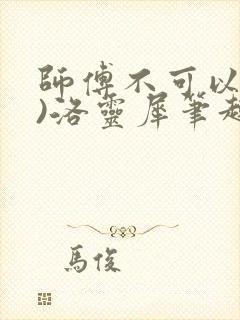 師傅不可以
)洛靈犀筆趣
馬俊